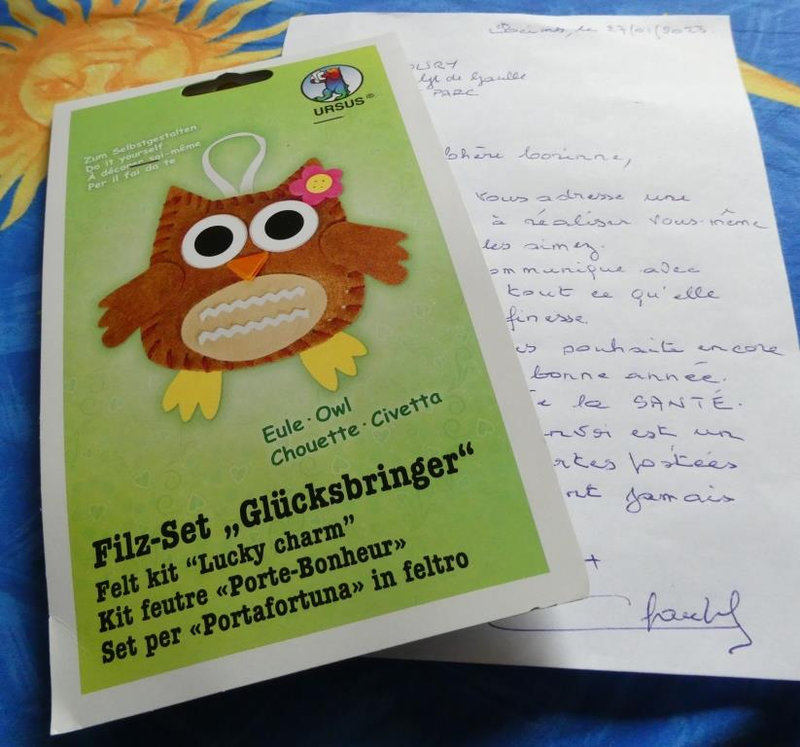 URSUS®
Zum Selbstgestalten
Do it yourself
A décorer soi-même
Per il fai da te
Eule · Owl
Chouette · Civetta
Filz-Set „Glücksbringer“
Felt kit “Lucky charm”
Kit feutre «Porte-Bonheur»
Set per «Portafortuna» in feltro
le 27/01/2023
de Gaulle
PARC
Corinne,
vous adresse une
à réaliser vous-même
les aimez.
ommunique avec
tout ce qu'elle
finesse.
souhaite encore
bonne année.
la SANTÉ.
nvoi est un
rtes postées
nt jamais
+